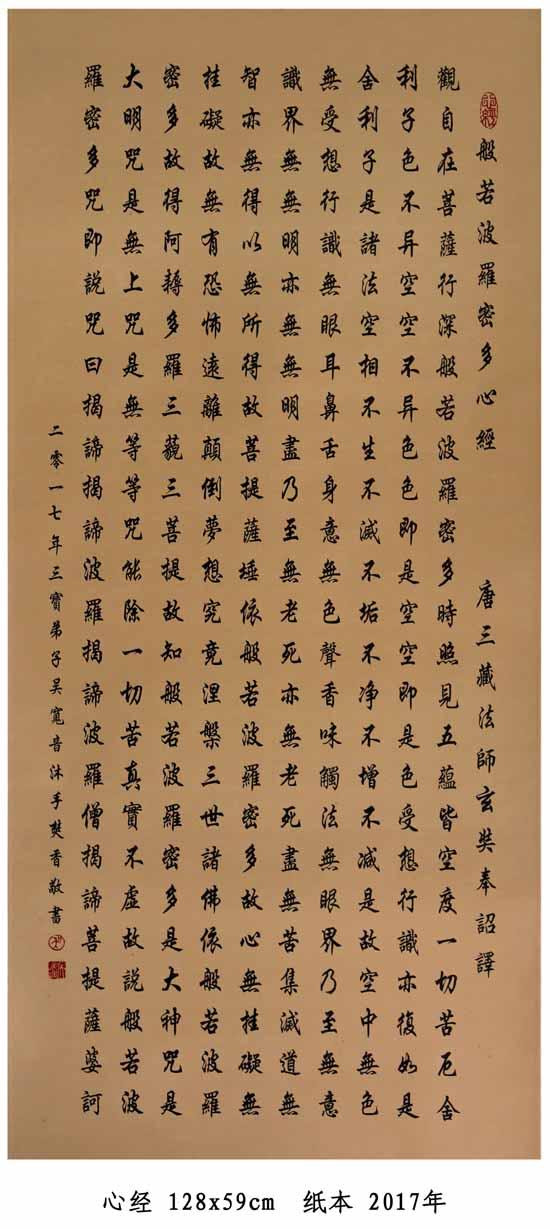 般若波羅密多心經 唐三藏法師玄奘奉詔譯
觀自在菩薩行深般若波羅密多時照見五蘊皆空度一切苦厄舍
利子色不异空空不异色色即是空空即是色受想行識亦復如是
舍利子是諸法空相不生不滅不垢不净不增不减是故空中無色
無受想行識無眼耳鼻舌身意無色聲香味觸法無眼界乃至無意
識界無無明亦無無明盡乃至無老死亦無老死盡無苦集滅道無
智亦無得以無所得故菩提薩埵依般若波羅密多故心無挂礙無
挂礙故無有恐怖遠離顛倒夢想究竟涅槃三世諸佛依般若波羅
密多故得阿耨多羅三藐三菩提故知般若波羅密多是大神咒是
大明咒是無上咒是無等等咒能除一切苦真實不虛故說般若波
羅密多咒即說咒曰揭諦揭諦波羅揭諦波羅僧揭諦菩提薩婆訶
二零一七年三寶弟子吴寬音沐手焚香敬書
心经 128x59cm 纸本 2017年